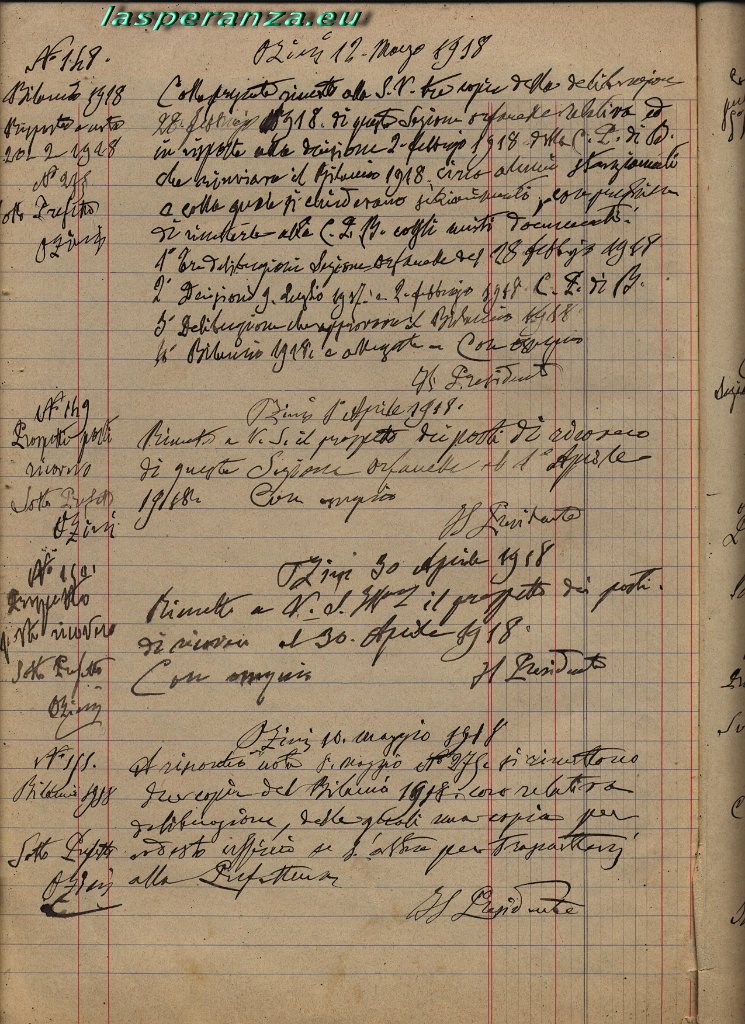 lasperanza.eu
N° 148.
Ozieri 12. Marzo 1918
Bilancio 1918
Risposta a nota
20-2 1918
N° 278
Sotto Prefetto
Ozieri
Colla presente rimetto alla S.V. tre copie della deliberazione
28 febbraio 1918. di questa Sezione orfanelle relativa ed
in risposta alla decisione 2 febbraio 1918 della C. P. di B.
che rinviava il Bilancio 1918, circa alcuni stanziamenti
e colla quale si chiedevano, con preghiera
di rimetterle alla C. P. B. cogli uniti documenti:
1° Tre deliberazioni Sezione orfanelle del 28 febbraio 1918
2° Decisioni 9. Luglio 1917. e 2. febbraio 1918. C. P. di B.
3° Deliberazione che approvava il Bilancio 1918
4° Bilancio 1918. e allegati Con ossequio
Il Presidente
N° 149
Ozieri 1° Aprile 1918.
Prospetto posti
ricovero
Sotto Prefetto
Ozieri
Rimetto a V. S. il prospetto dei posti di ricovero
di questa Sezione orfanelle al 1° Aprile
1918. Con ossequio
Il Presidente
N° 150.
Ozieri 30 Aprile 1918
Prospetto
posti ricovero
Sotto Prefetto
Ozieri
Rimetto a V. S. Ill.ma il prospetto dei posti.
di ricovero al 30. Aprile 1918.
Con ossequio Il Presidente
Ozieri 10. maggio 1918
N° 151.
Bilancio 1918
Sotto Prefetto
Ozieri
A riposta nota maggio N° 275. si rimettono
due copie del Bilancio 1918. con relativa
deliberazione, delle quali una copia per
codesto ufficio e l'altra per trasmettersi
alla Prefettura
Il Presidente